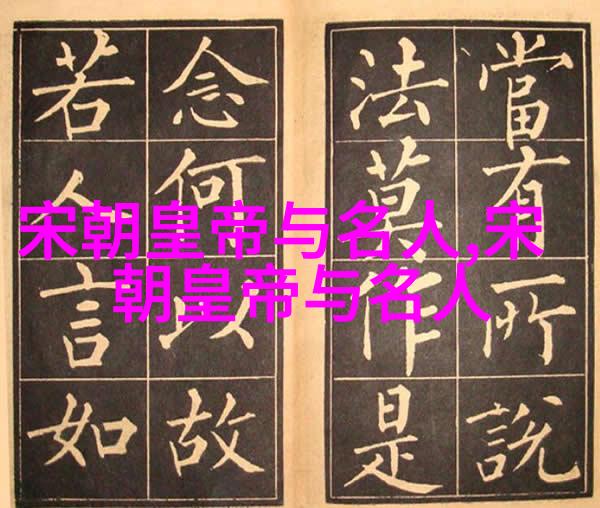 宋朝皇帝与名人,宋
朝皇帝与名人
當有所說
法莫作是
念何以故
若人言如